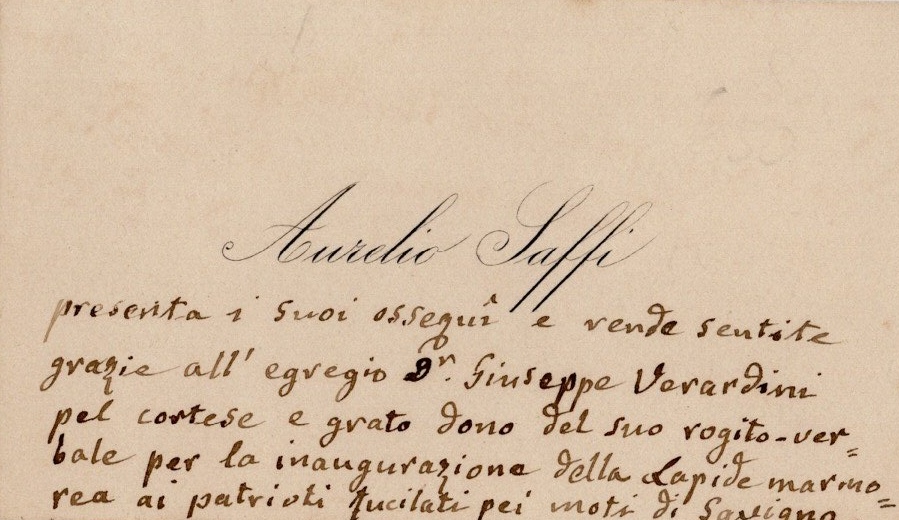 Aurelio Saffi
presenta i suoi ossequî e rende sentite
grazie all' egregio Dr. Giuseppe Verardini
pel cortese e grato dono del suo rogito-ver=
bale per la inaugurazione della Lapide marmo=
rea ai patrioti fucilati pei moti di Savigno